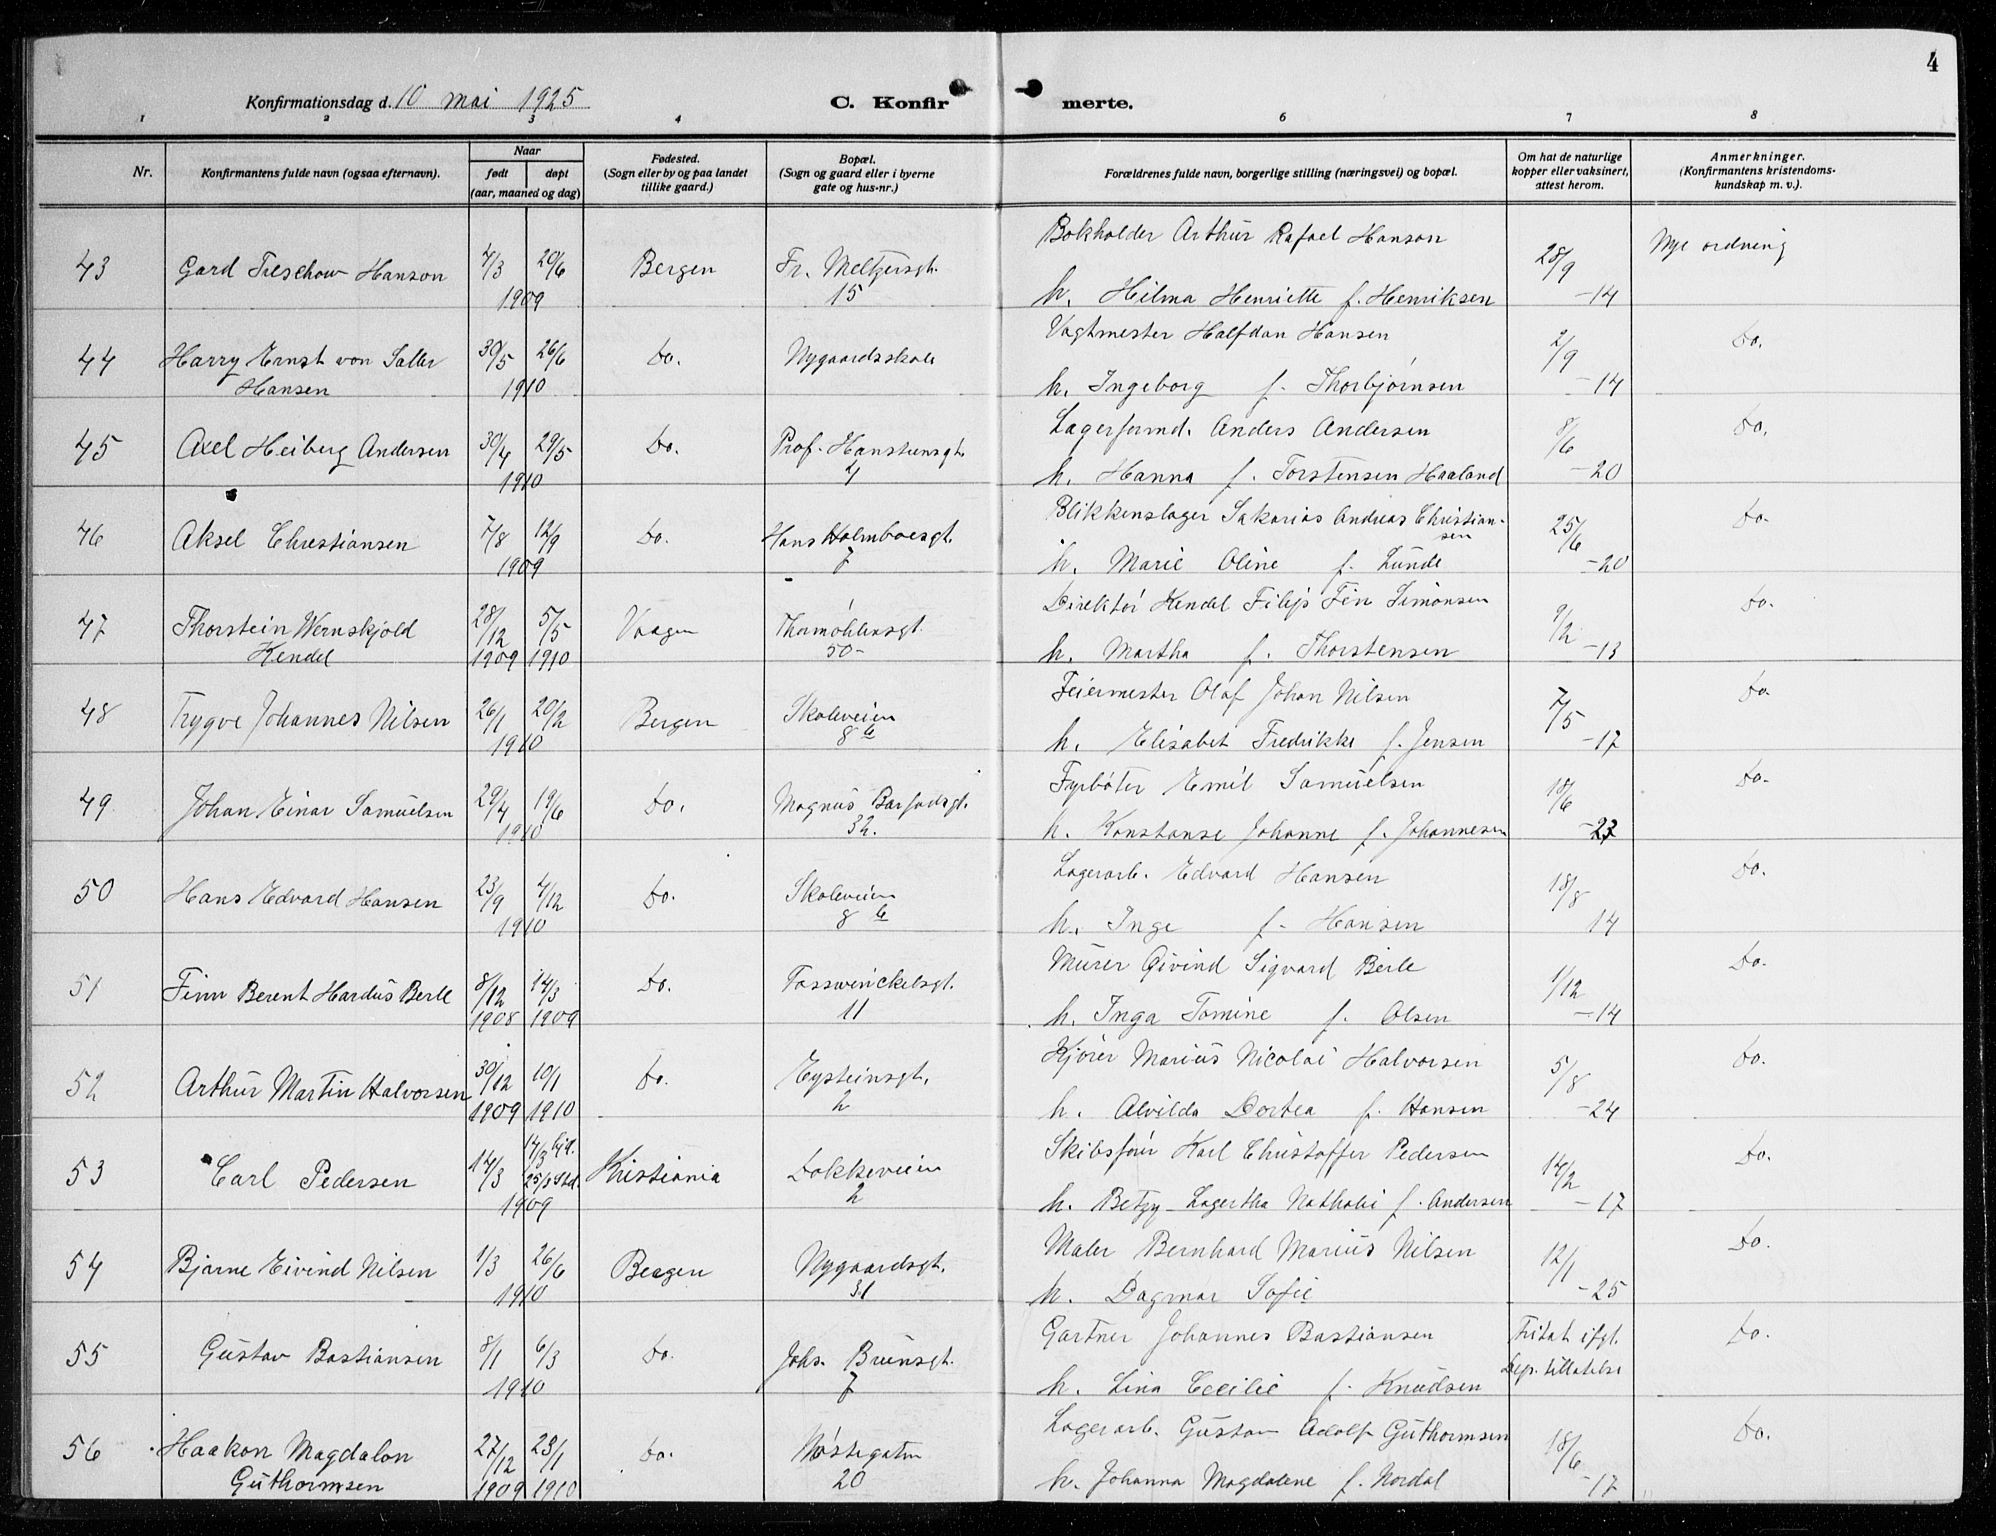 4
Konfirmationsdag d. 10 mai 1925
C. Konfirmerte.
1 2 3 4 6 7 8
Nr.
Konfirmantens fulde navn (ogsaa efternavn).
Naar
født døpt
(aar, maaned og dag)
Fødested.
(Sogn eller by og paa landet
tillike gaard.)
Bopæl.
(Sogn og gaard eller i byerne
gate og hus-nr.)
Forældrenes fulde navn, borgerlige stilling (næringsvei) og bopæl.
Om hat de naturlige
kopper eller vaksinert,
attest herom.
Anmerkninger.
(Konfirmantens kristendoms-
kundskap m. v.).
Bokholder Arthur Rafael Hanson
43 Gard Treschow Hanson 4/3 20/6 Bergen Fr. Meltzersgt. 28/9 Nye ordning
1909 15 h. Hilma Henriette f. Henriksen -14
Vagtmester Halfdan Hansen
44 Harry Ernst von Saller 30/5 26/6 Do. Nygaardsskole 2/9 Do.
Hansen 1910 h. Ingeborg f. Thorbjørnsen -14
Lagerformd. Anders Andersen
45 Axel Heiberg Andersen 30/4 29/5 Do. Prof. Hansteensgt. 8/6 Do.
1910 4 h. Hanna f. Torstensen Haaland -20
Blikkenslager Sakarias Andreas Christian-
sen
46 Aksel Christiansen 7/8 12/9 Do. Hans Holmboesgt. 25/6 Do.
1909 7 h. Marie Oline f. Lunde -20
Direktør Kendel Filip Fin Simonsen
47 Thorstein Wernskjold 28/12 5/5 Vaagen Thormøhlensgt. 9/2 Do.
Kendel 1909 1910 50- h. Martha f. Thorstensen -13
Feiermester Olaf Johan Nilsen
48 Trygve Johannes Nilsen 26/1 20/2 Bergen Skoleveien 7/5 Do.
1910 8 b h. Elisabet Fredrikke f. Jensen -17
Fyrbøter Emil Samuelsen
49 Johan Einar Samuelsen 29/4 19/6 Do. Magnus Barfodsgt. 18/6 Do.
1910 32. h. Konstanse Johanne f. Johannesen -23
Lagerarb. Edvard Hansen
50 Hans Edvard Hansen 23/9 4/12 Do. Skoleveien 18/8 Do.
1910 8 b h. Inga f. Hansen 14
Murer Øivind Sigvard Berle
51 Finn Berent Hardus Berle 8/12 14/3 Do. Fosswinckelsgt. 1/12 Do.
1908 1909 11 h. Inga Tomine f. Olsen -14
Kjører Marius Nicolai Halvorsen
52 Arthur Martin Halvorsen 30/12 10/1 Do. Eysteinsgt. 5/8 Do.
1909 1910 2 h. Alvilda Dortea f. Hansen -24
Skibsfører Karl Christoffer Pedersen
53 Carl Pedersen 14/3 14/3 hjd. Kristiania Dokkeveien 14/2 Do.
25/8 std.
1909 2 h. Betzy Lagertha Nathalie f. Andersen -17
Maler Bernhard Marius Nilsen
54 Bjarne Eivind Nilsen 1/3 26/6 Bergen Nygaardsgt. 12/1 Do.
1910 31 h. Dagmar Sofie -25
Gartner Johannes Bastiansen
55 Gustav Bastiansen 8/1 6/3 Do. Johs. Brunsgt. Fritat ifgl. Do.
1910 7 h. Lina Cecilie f. Knudsen Dep. tillatelse
Lagerarb. Gustav Adolf Guthormsen
56 Haakon Magdalon 27/12 23/1 Do. Nøstegaten 18/6 Do.
Guthormsen 1909 1910 20 h. Johanna Magdalene f. Nordal -17